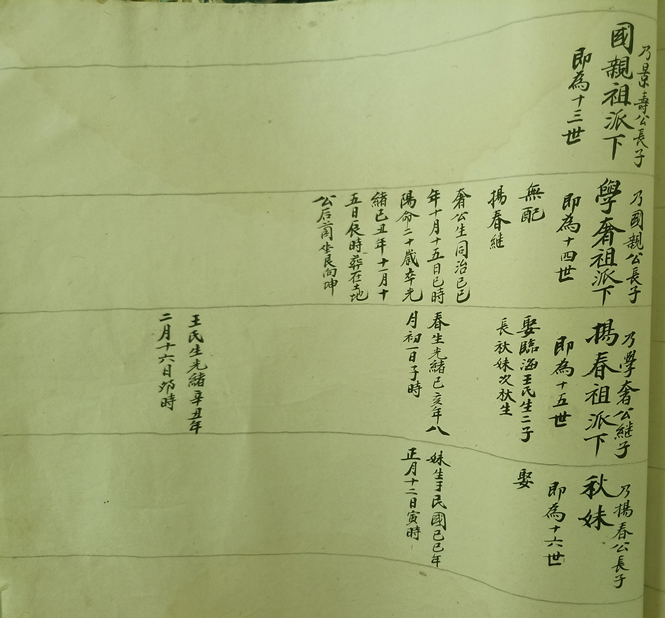 乃景壽公長子
國親祖派下
即為十三世
乃國親公長子
學奢祖派下
即為十四世
無配
揚春継
奢公生同治己巳
年十月十五日巳時
陽命二十歲卒光
緒己丑年十一月十
五日辰時葬在土地
公后崗坐艮向坤
乃學奢公継子
揚春祖派下
即為十五世
娶臨海王氏生二子
長秋妹次秋生
春生光緒己亥年八
月初一日子時
王氏生光緒辛丑年
二月十六日卯時
乃揚春公長子
秋妹
即為十六世
娶
妹生于民國己巳年
正月十二日寅時